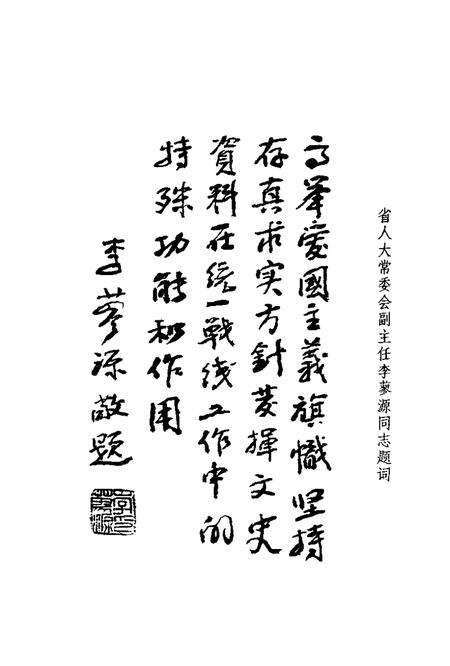 省人大常委会副主任李蓼源同志题词
高举爱國主義旗幟坚持
存真求实方針发揮文史
資料在统一戰线工作中的
特殊功能和作用
李蓼源敬题